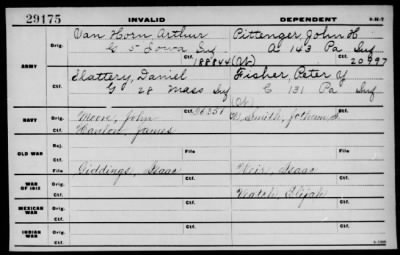 29175 INVALID DEPENDENT
ARMY
Orig. Van Horn Arthur Pittenger, John H
G 5 Iowa Inf A 143 Pa Inf
Ctf. 188844 (W) Ctf. 20997
Slattery, Daniel Fisher, Peter Y
G 28 Mass Inf C 131 Pa Inf
(W)
NAVY
Orig. Moore, John Ctf. W Smith, Jotham
Ctf. Hanlon, James
OLD WAR
Rej.
Ctf. File File
WAR OF 1812
Orig. Giddings, Isaac Weir, Isaac
Ctf. Walsh, Elijah
MEXICAN WAR
Orig.
Ctf.
INDIAN WAR
Orig.
Ctf.